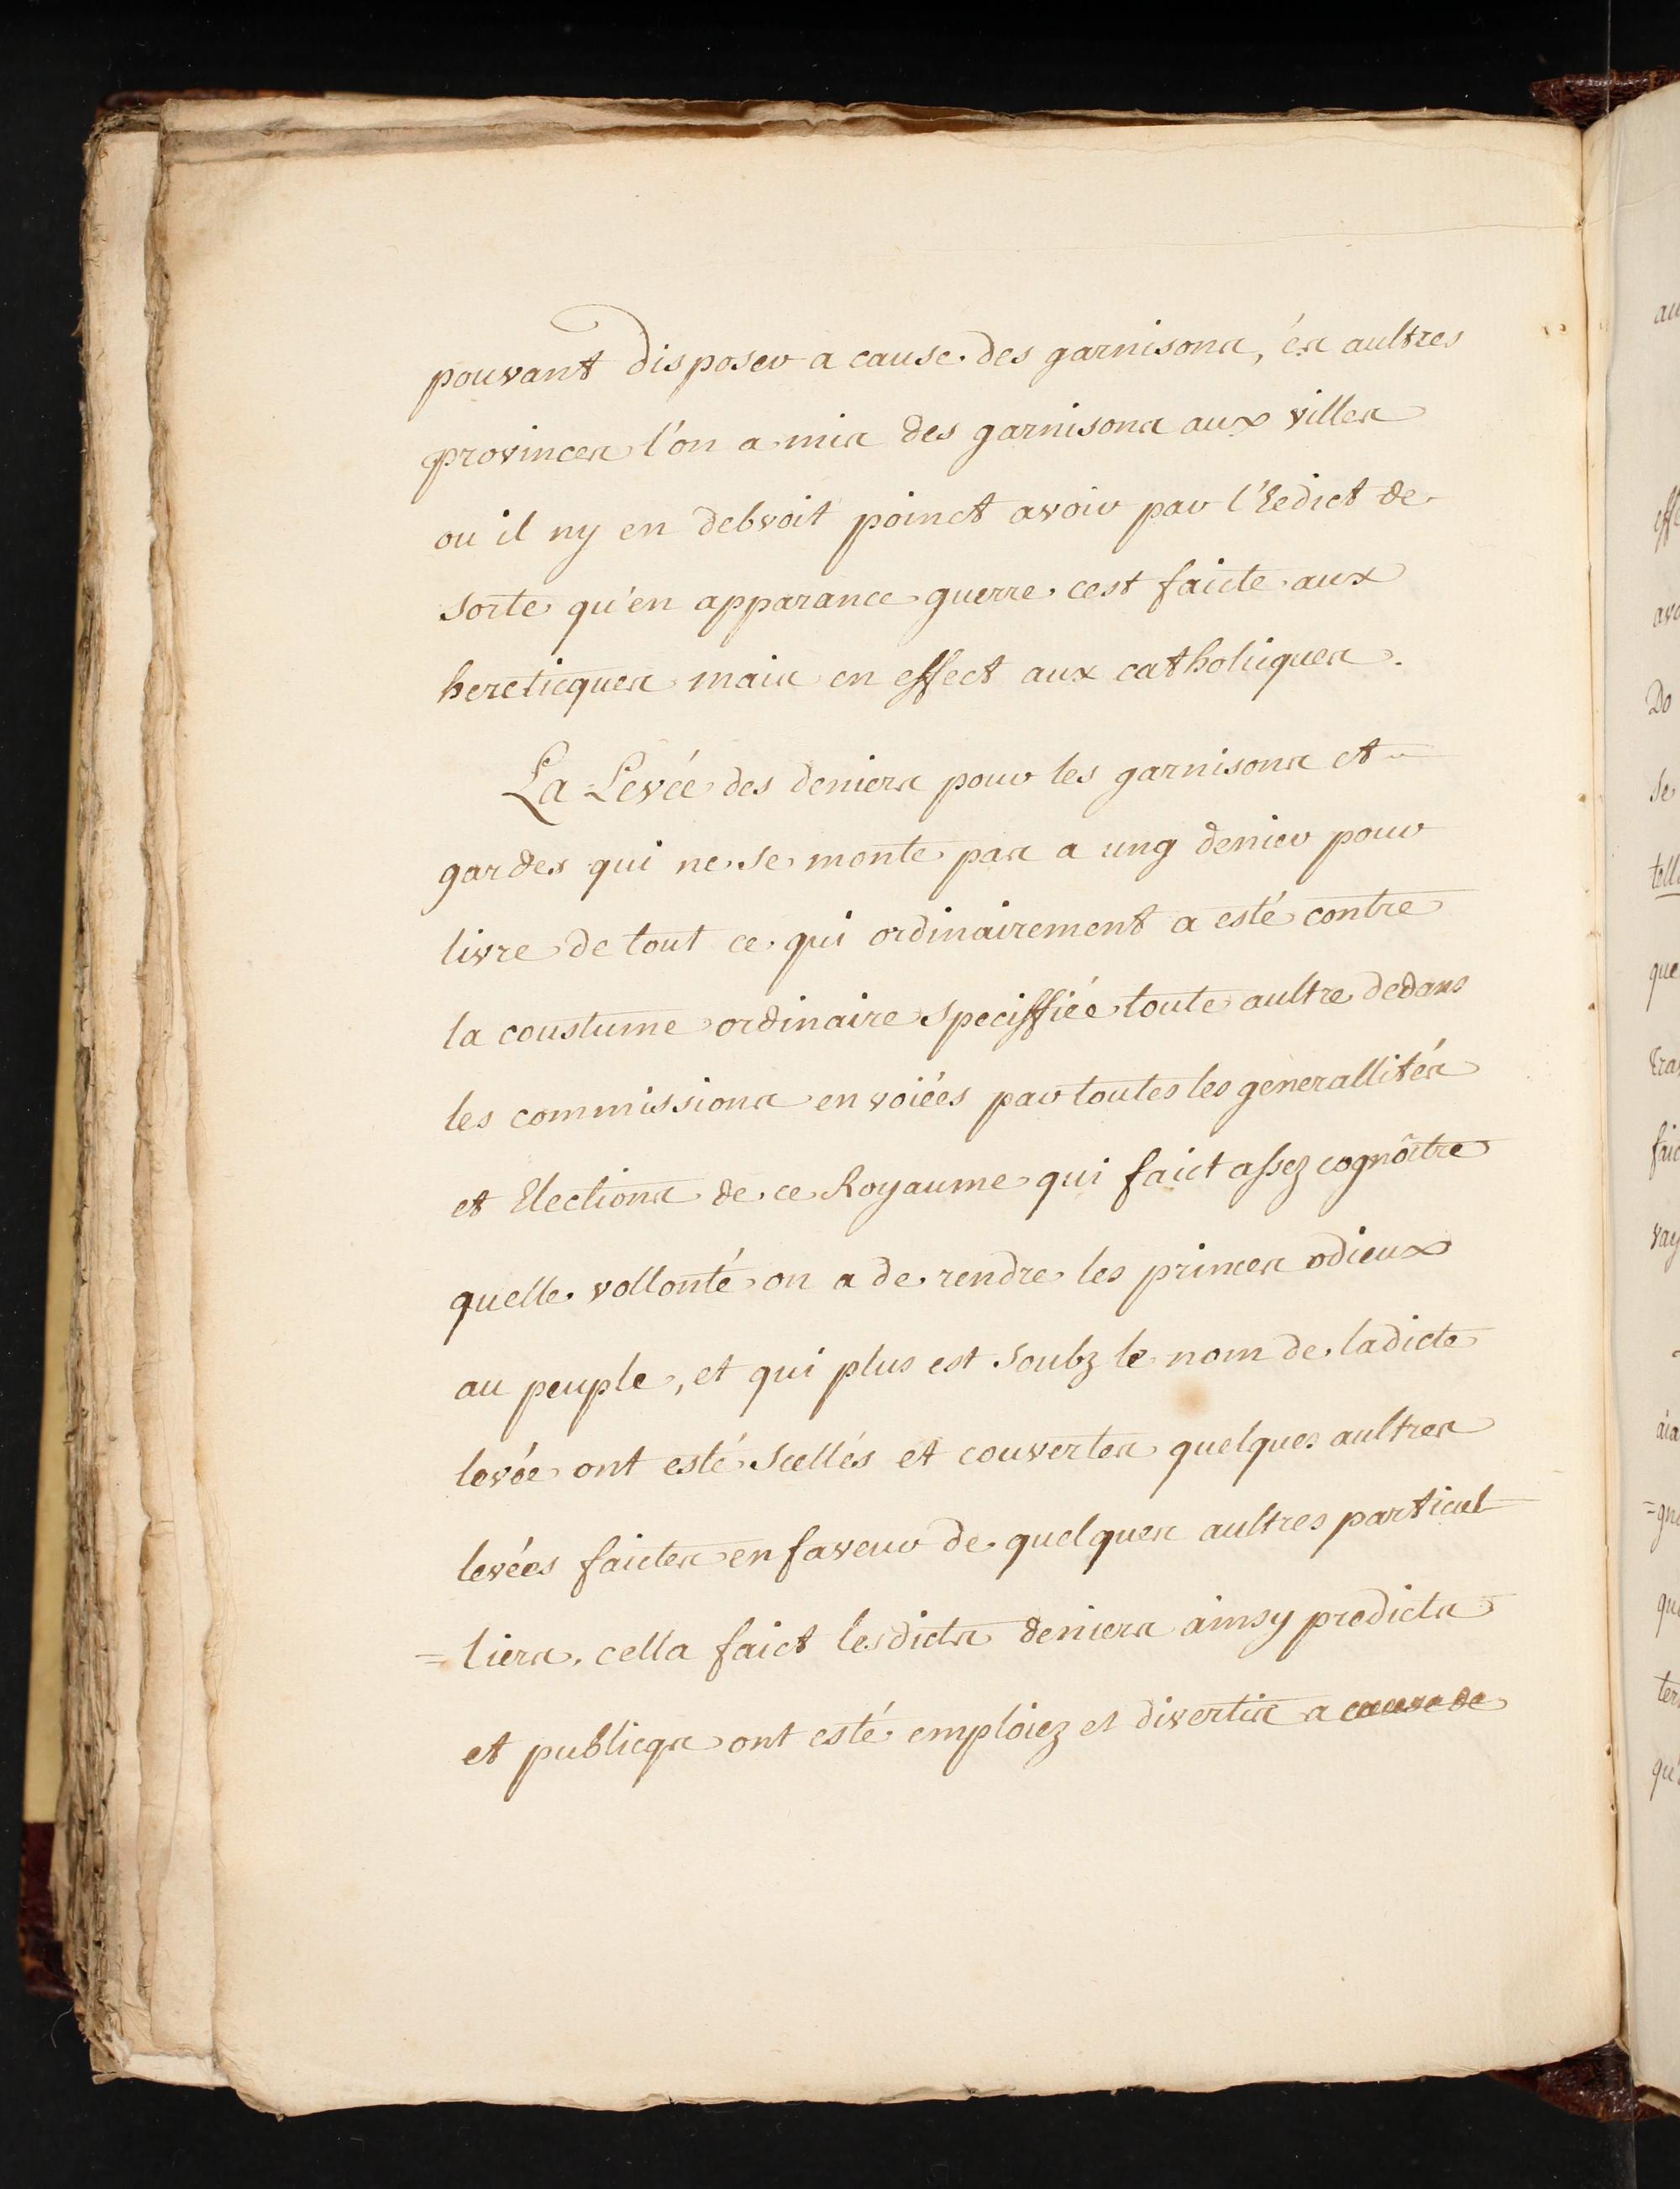 pouvant disposer a cause des garnisons, és aultres
provinces l'on a mis des garnisons aux villes
ou il ny en debvoit poinct avoir par l'Eedict de
sorte qu'en apparance guerre cest faicte aux
hereticques mais en effect aux catholicques.
La Levée des deniers pour les garnisons et
gardes qui ne se monte pas a ung denier pour
livre de tout ce qui ordinairement a esté contre
la coustume ordinaire speciffiée toute aultre dedans
les commissions envoiées par toutes les generallités
et Elections de ce Royaume qui faict assez cognôitre
quelle vollonté on a de rendre les princes odieux
au peuple, et qui plus est soubz le nom de ladicte
levée ont esté scellés et couvertes quelques aultres
levées faictes en faveur de quelques aultres particul
=liers. cella faict lesdicts deniers ainsy predicts
et publicqs ont esté emploiez et divertis a cause de